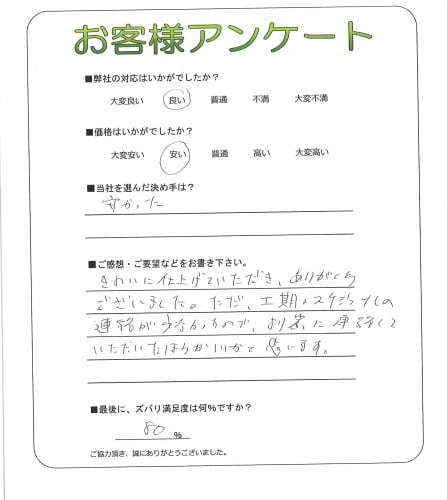 お客様アンケート
■弊社の対応はいかがでしたか？
大変良い 良い 普通 不満 大変不満
■価格はいかがでしたか？
大変安い 安い 普通 高い 大変高い
■当社を選んだ決め手は？
安かった
■ご感想・ご要望などをお書き下さい。
きれいに仕上げていただき、ありがとう
ございました。ただ、工期、スケジュールの
連絡が少なかったので、より密に連絡して
いただいたほうがいいかと思います。
■最後に、ズバリ満足度は何%ですか？
80 %
ご協力頂き、誠にありがとうございました。